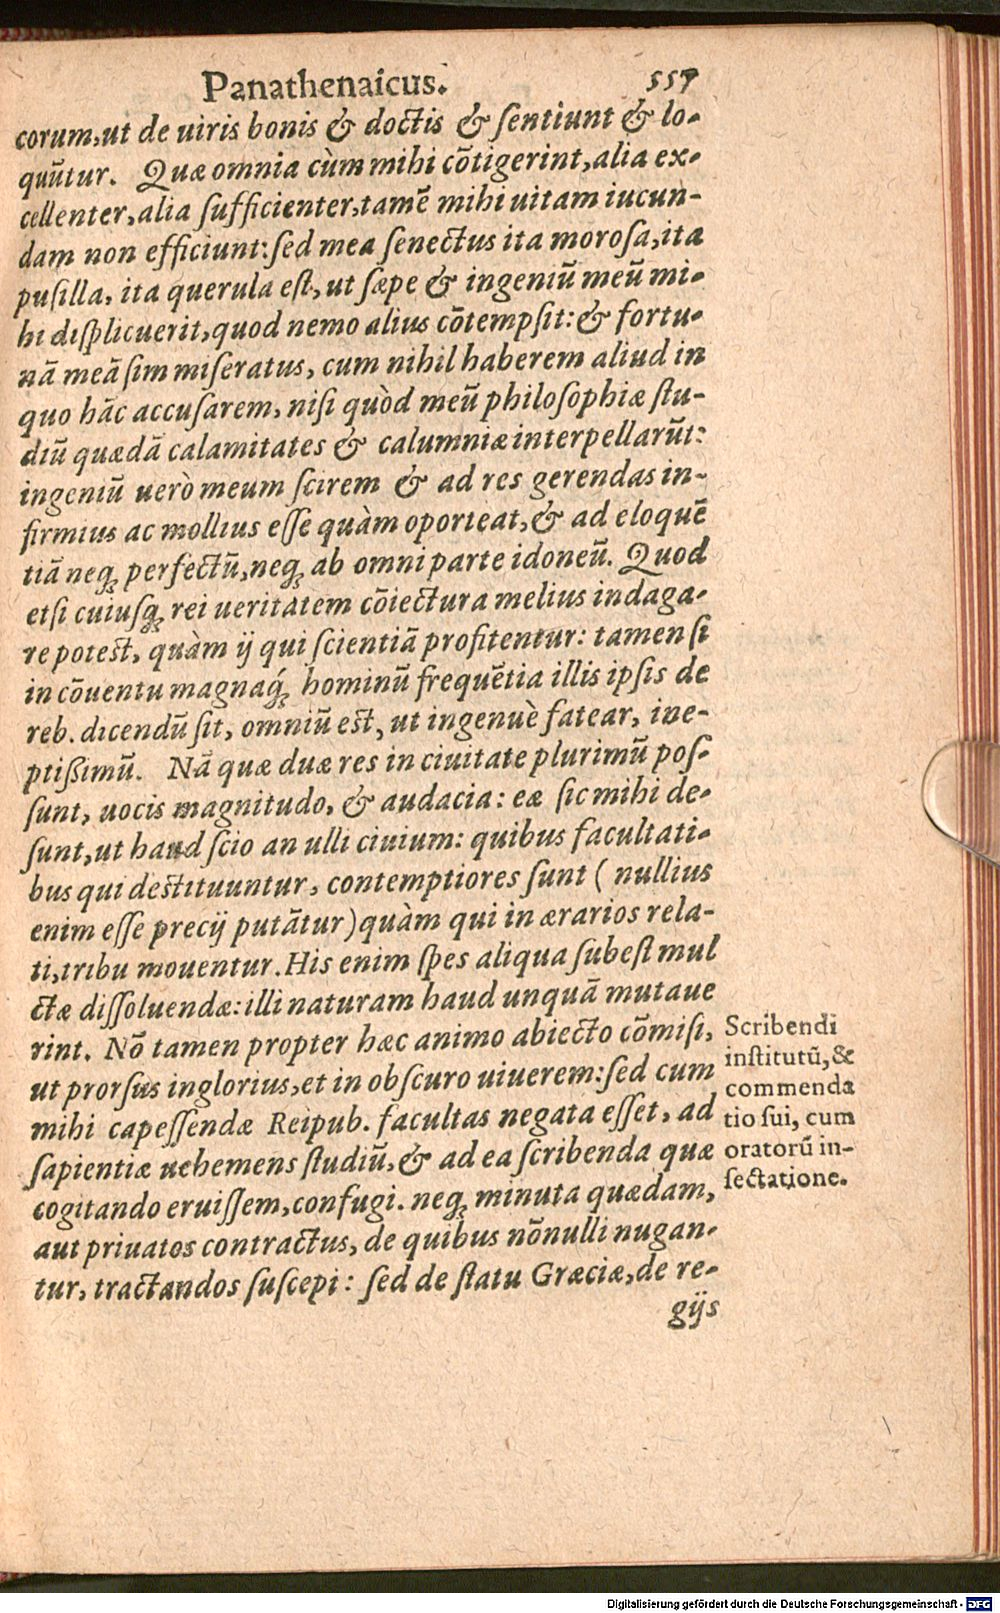 Panathenaicus. 557
corum, ut de uiris bonis & doctis & ſentiunt & lo-
quũtur. Quæ omnia cùm mihi cõtigerint, alia ex-
cellenter, alia ſufficienter, tamẽ mihi uitam iucun-
dam non efficiunt: ſed mea ſenectus ita moroſa, ita
puſilla, ita querula eſt, ut ſæpe & ingeniũ meũ mi-
hi diſplicuerit, quod nemo alius cõtempſit: & fortu-
nã meã ſim miſeratus, cum nihil haberem aliud in
quo hãc accuſarem, niſi quòd meũ philoſophiæ ſtu-
diũ quædã calamitates & calumniæ interpellarũt:
ingeniũ uerò meum ſcirem & ad res gerendas in-
firmius ac mollius eſſe quàm oporteat, & ad eloquẽ
tiã neq; perfectũ, neq; ab omni parte idoneũ. Quod
etſi cuiuſq; rei ueritatem cõiectura melius indaga-
re poteſt, quàm ij qui ſcientiã profitentur: tamen ſi
in cõuentu magnaq́; hominũ frequẽtia illis ipſis de
reb. dicendũ ſit, omniũ eſt, ut ingenuè fatear, ine-
ptißimũ. Nã quæ duæ res in ciuitate plurimũ poſ-
ſunt, uocis magnitudo, & audacia: eæ ſic mihi de-
ſunt, ut haud ſcio an ulli ciuium: quibus facultati-
bus qui deſtituuntur, contemptiores ſunt ( nullius
enim eſſe precij putãtur) quàm qui in ærarios rela-
ti, tribu mouentur. His enim ſpes aliqua ſubeſt mul
ctæ diſſoluendæ: illi naturam haud unquã mutaue
rint. Nõ tamen propter hæc animo abiecto cõmiſi,
ut prorſus inglorius, et in obſcuro uiuerem: ſed cum
mihi capeſſendæ Reipub. facultas negata eſſet, ad
ſapientiæ uehemens ſtudiũ, & ad ea ſcribenda quæ
cogitando eruiſſem, confugi. neq; minuta quædam,
aut priuatos contractus, de quibus nõnulli nugan-
tur, tractandos ſuſcepi: ſed de ſtatu Græciæ, de re-
gijs
Scribendi
inſtitutũ, &
commenda
tio ſui, cum
oratorũ in-
ſectatione.
Digitalisierung gefördert durch die Deutsche Forschungsgemeinschaft - DFG